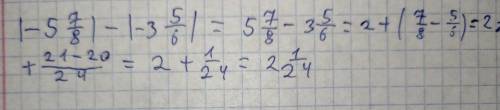 |-5 7/8| - |-3 5/6| = 5 7/8 - 3 5/6 = 2 + (7/8 - 5/6) = 2 +
+ 21-20/24 = 2 + 1/24 = 2 1/24